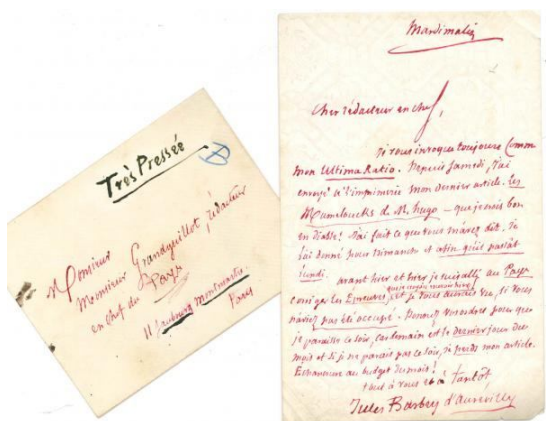 Très Pressée
Monsieur
Monsieur Grandguillot, rédacteur
en chef du Pays
11 faubourg montmartre
Paris
Mardi matin
Cher rédacteur en chef,
Je vous invoque toujours Comme
mon Ultima Ratio. Depuis samedi, j'ai
envoyé à l'imprimerie mon dernier article. Les
de M. hugo – que je sais bon
en Diable! J'ai fait ce que vous m'avez dit. Je
l'ai donné pour Dimanche et afin qu'il passât
lundi.
avant hier et hier je suis allé au Pays
corriger les Epreuves, et je vous aurais vu, si vous
n'aviez pas été occupé. Donnez vos ordres pour que
je paraisse ce soir, car demain est le dernier jour du
mois et si je ne parais pas ce soir, je perds mon article.
au budget du mois!
tout à vous et à tantôt
Jules Barbey d'Aurevilly